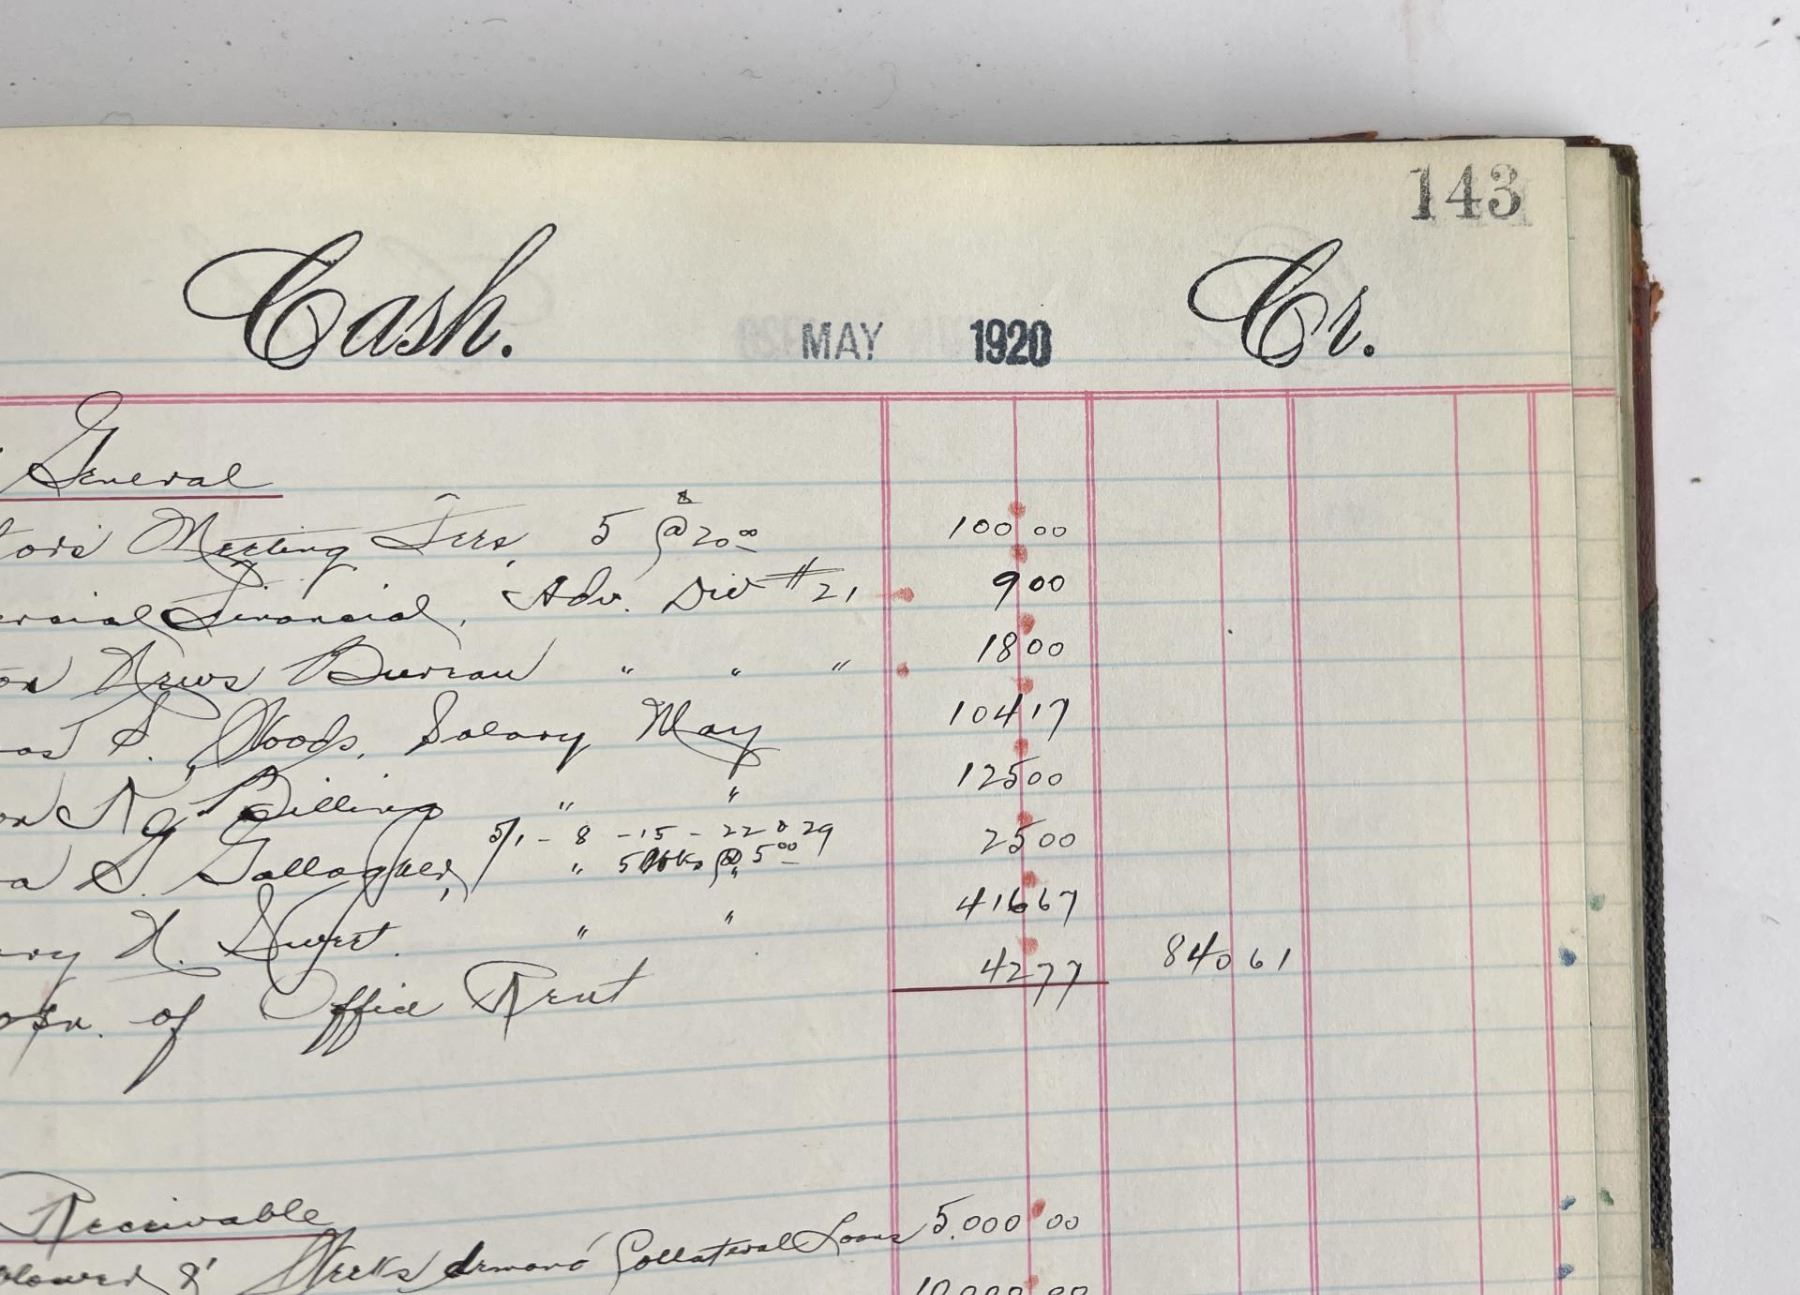 143
Cash. MAY 1920 Cr.
General
tors Meeting Fees, 5 @ 20 00 100 00
ercial Financial, Adv. Div #21 9 00
on News Bureau " " " 18 00
as S. Woods, Salary May 104 17
on N Billing " " 125 00
5/1 - 8 - 15 - 22 & 29
a G. Gallagher, " 5 Wks @ 5 00 25 00
ry H. Swert. " " 416 67
of Office Rent 42 77 840 61
Receivable
& Weeks demand Collateral Loans 5.000 00
10.000 00